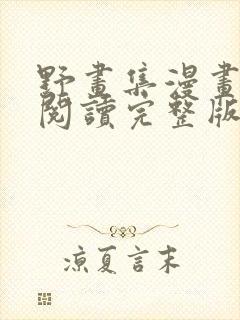 野畫集漫畫
閱讀完整版
涼夏言末